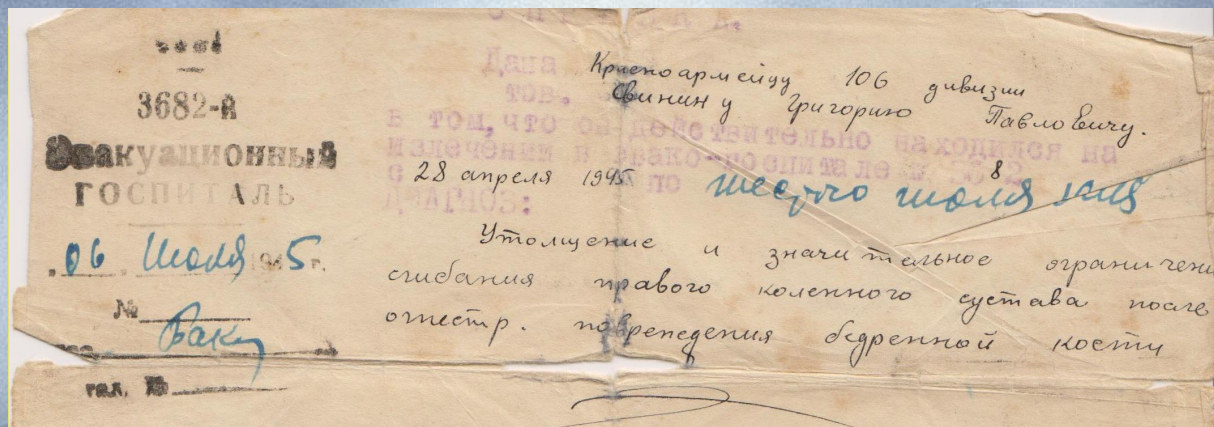 3682-й
Эвакуационный
ГОСПИТАЛЬ
06 Июля 1945 г.
№
Баку
тел. №
Дана Красноармейцу 106 дивизии
тов. Свинину Григорию Павловичу.
в том, что он действительно находился на
излечении в эвако-госпитале № 3682
с 28 апреля 1945 по шестго июля
ДИАГНОЗ:
Утолщение и значительное ограничени
сгибания правого коленного сустава после
огнестр. повреждения бедренной кости